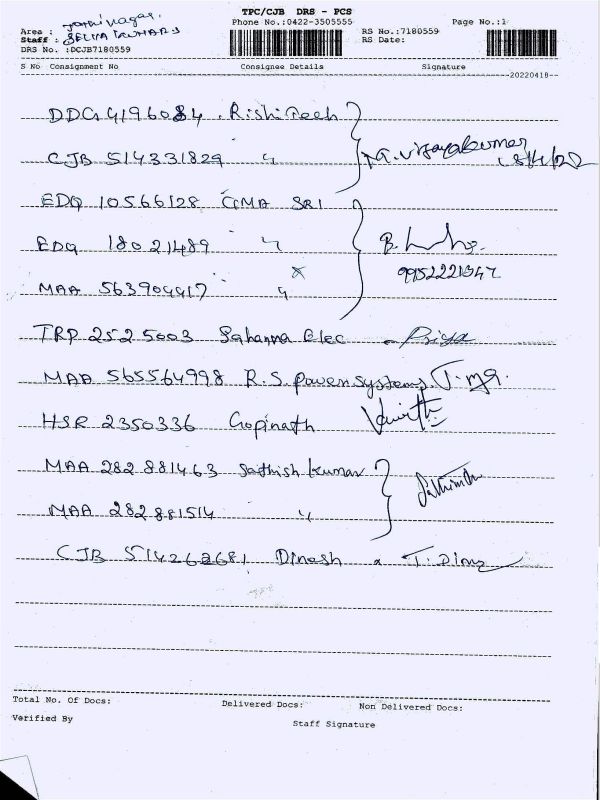 TPC/CJB DRS - PCS
Phone No.:0422-3505555 Page No.:1
Area :
Staff : SELVA KUMAR
RS No.:7180559
RS Date:
DRS No. :DCJB7180559
S No Consignment No Consignee Details Signature
20220418
DDG 4196084 Rishi Tech
CJB 514331829 〃 G. Vijayakumar 18/4/22
EDQ 10566128 GMA SRI
EDQ 18021489 〃 B.
9952221347
MAA 563904417 〃
TRP 2525003 Sahanna Elec Priya
MAA 565564998 R.S. Power Systems
HSR 2350336 Gopinath
MAA 282881463 Sathish kumar
MAA 282881514 〃
CJB 514262681 Dinesh
Total No. Of Docs: Delivered Docs: Non Delivered Docs:
Verified By Staff Signature